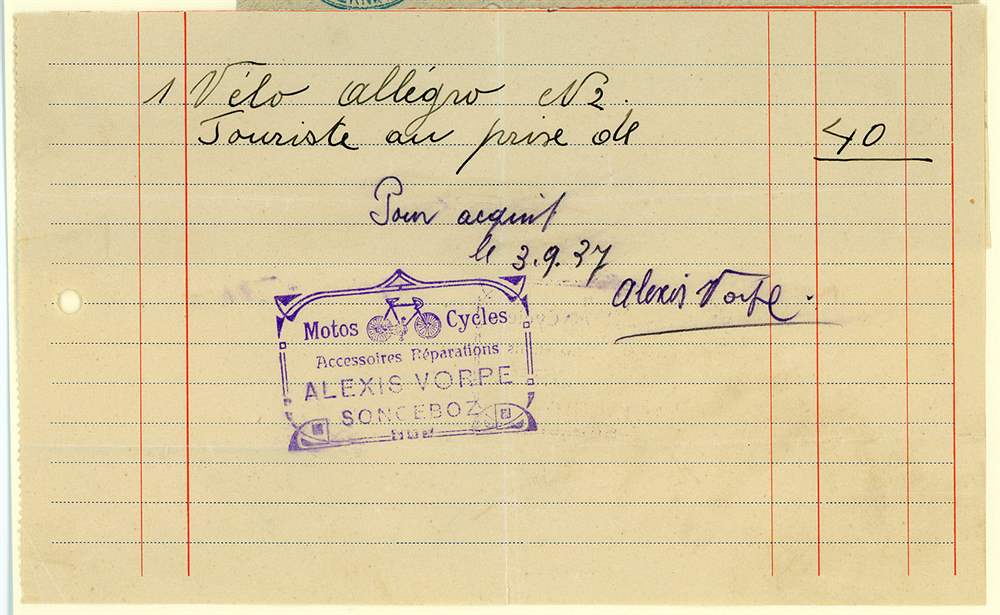 1 Vélo allégro N2.
Touriste au prise de 40
Pour acquit
le 3.9.37
Alexis Vorpe.
Motos Cycles
Accessoires Réparations
ALEXIS VORPE
SONCEBOZ